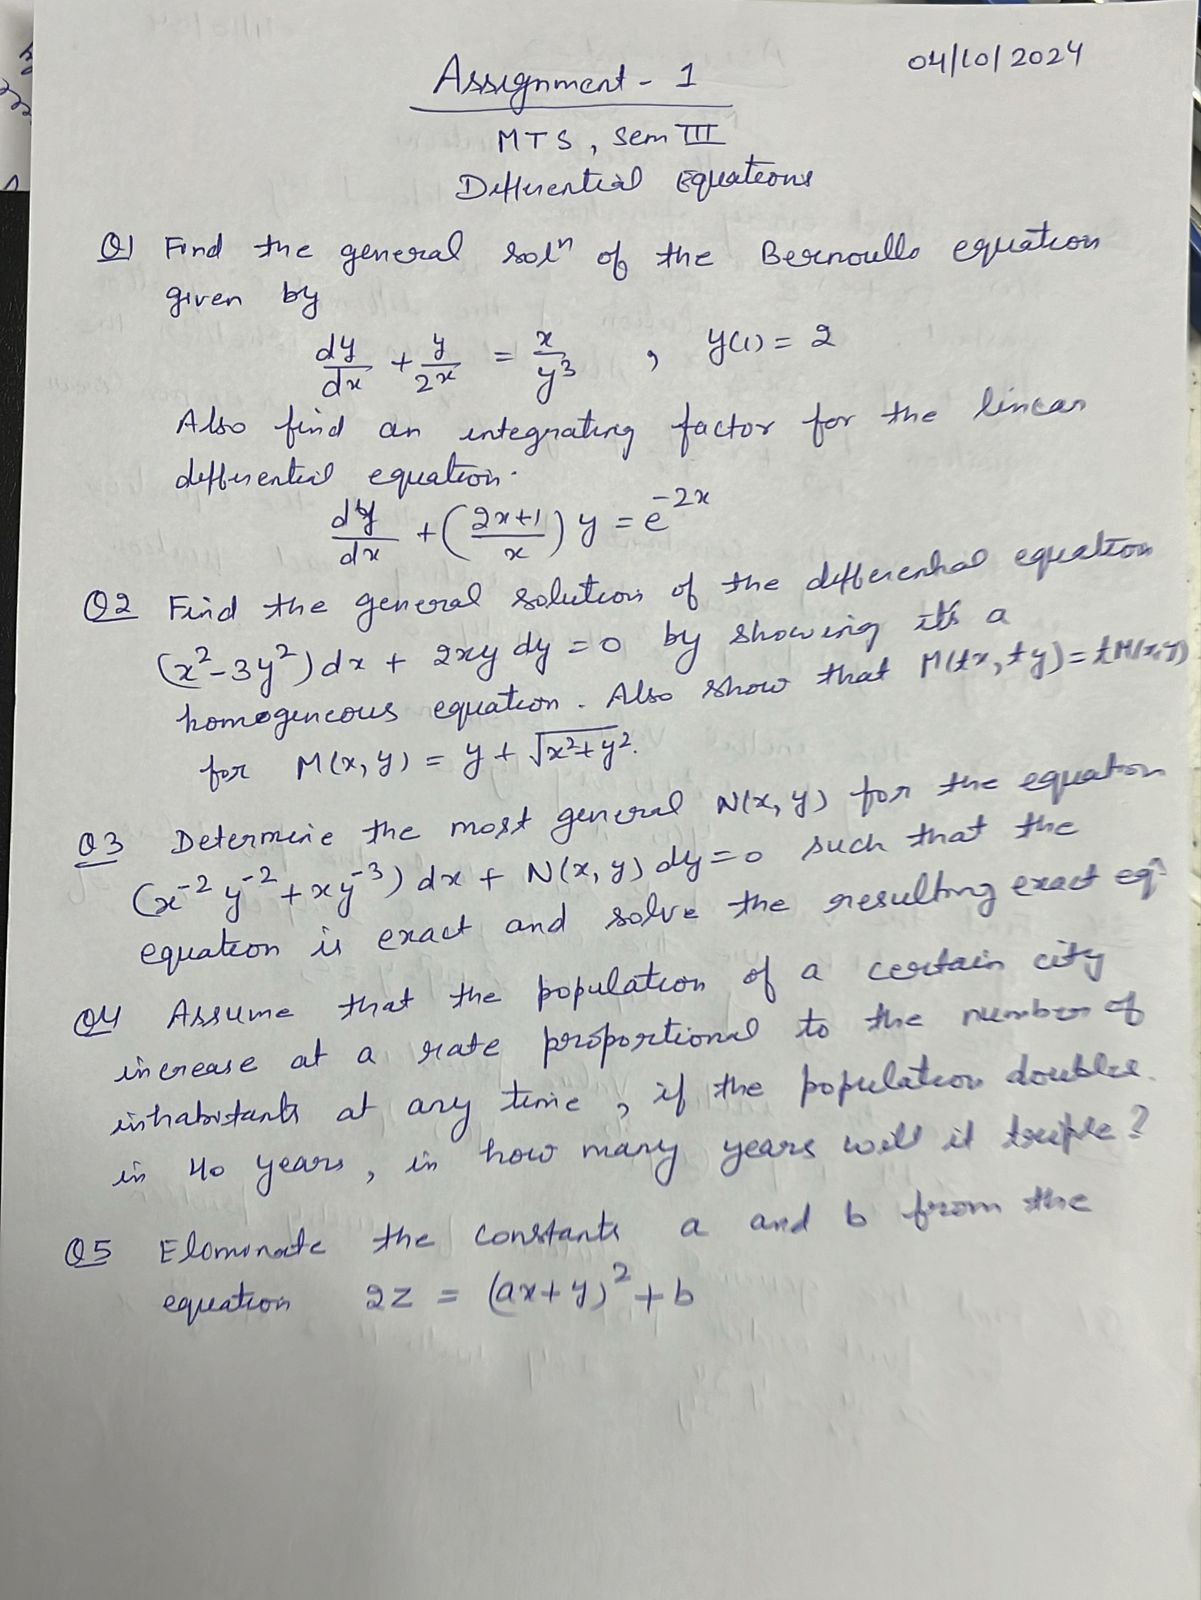 04/10/2024
Assignment - 1
MTS, Sem III
Differential Equations
Q1 Find the general solⁿ of the Bernoulli equation
given by
dy/dx + y/2x = x/y³ , y(1) = 2
Also find an integrating factor for the linear
differential equation.
dy/dx + (2x+1/x) y = e^-2x
Q2 Find the general solution of the differential equation
(x² - 3y²) dx + 2xy dy = 0 by showing it's a
homogeneous equation. Also show that M(tx, ty) = tM(x,y)
for M(x, y) = y + √x²+y².
Q3 Determine the most general N(x, y) for the equation
(x⁻² y⁻² + xy⁻³) dx + N(x, y) dy = 0 such that the
equation is exact and solve the resulting exact eqⁿ
Q4 Assume that the population of a certain city
increase at a rate proportional to the number of
inhabitants at any time, if the population doubles
in 40 years, in how many years will it triple?
Q5 Eliminate the constants a and b from the
equation 2z = (ax+y)² + b